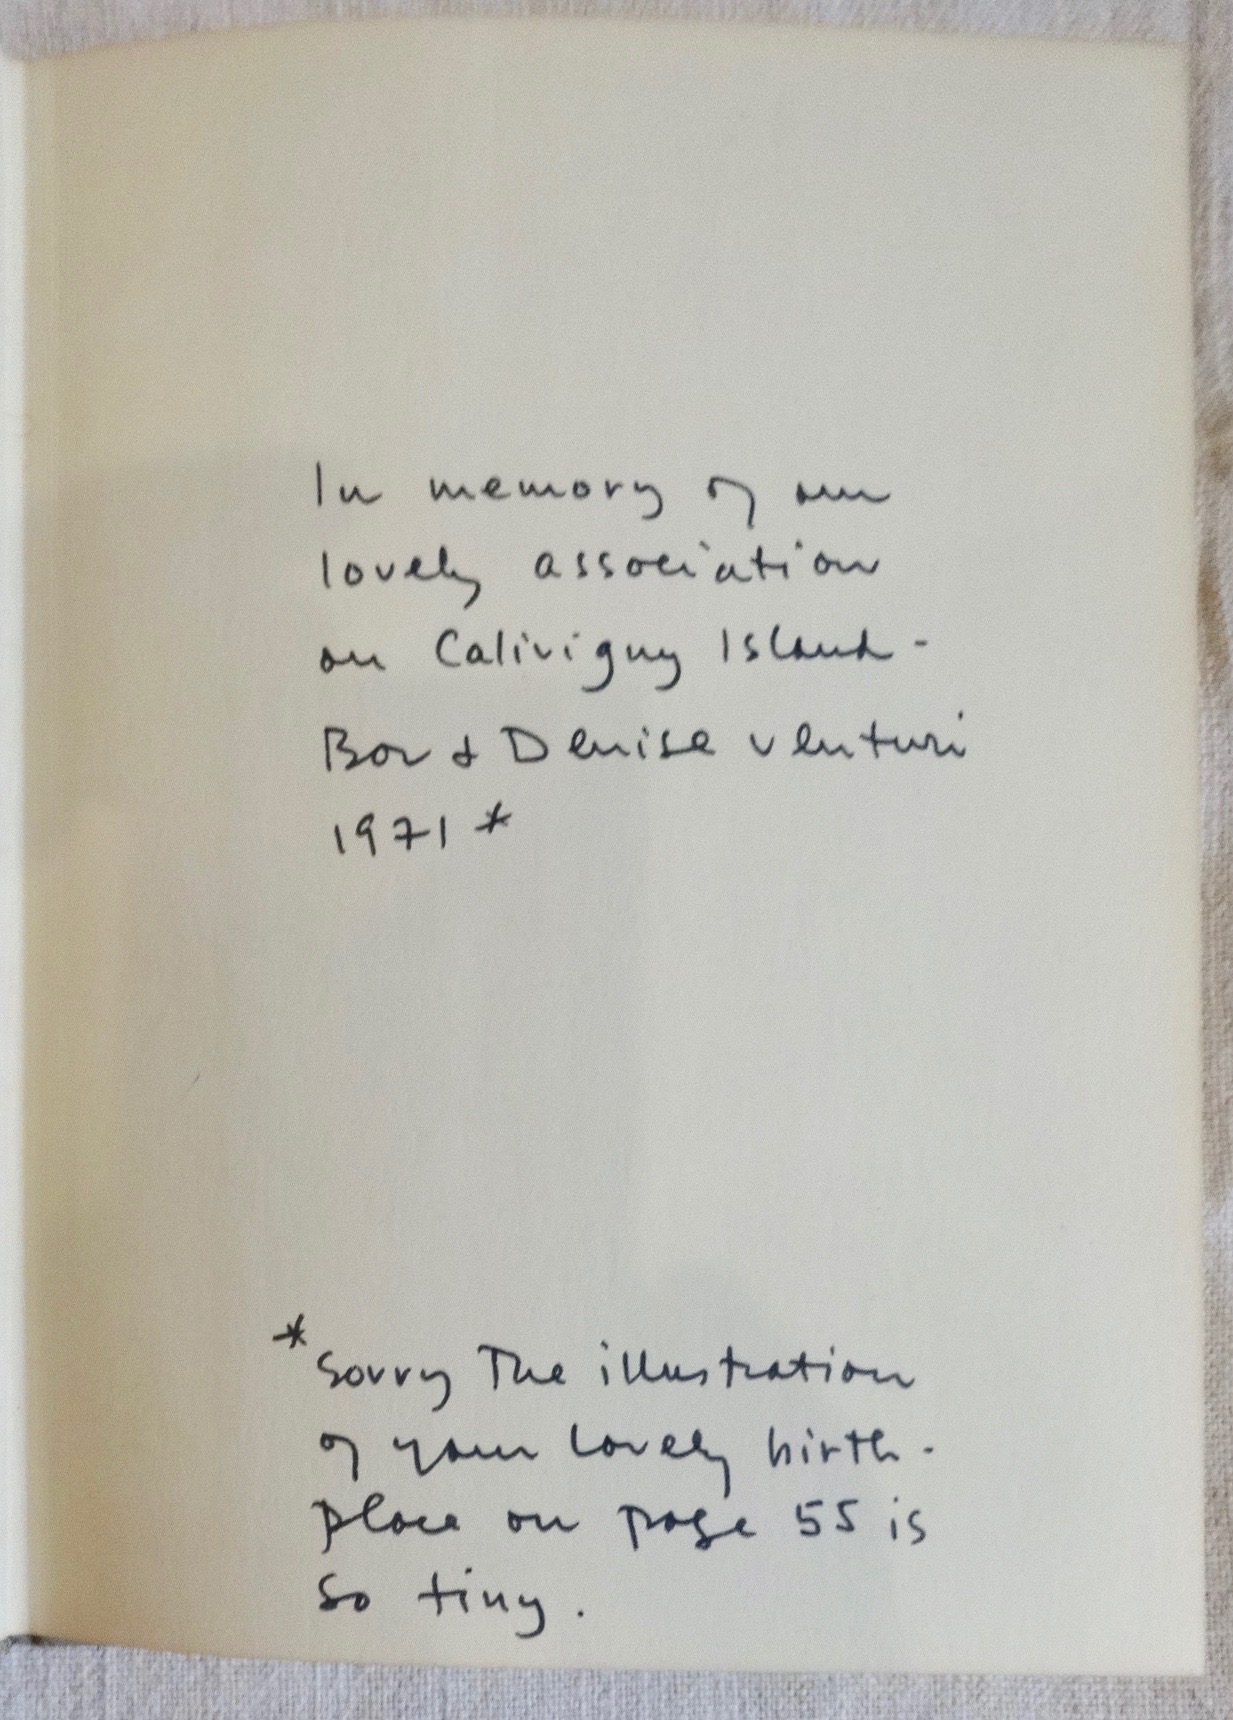 In memory of our
lovely association
on Calivigny Island -
Bob & Denise Venturi
1971 *
* Sorry The illustration
of your lovely birth-
place on page 55 is
so tiny.